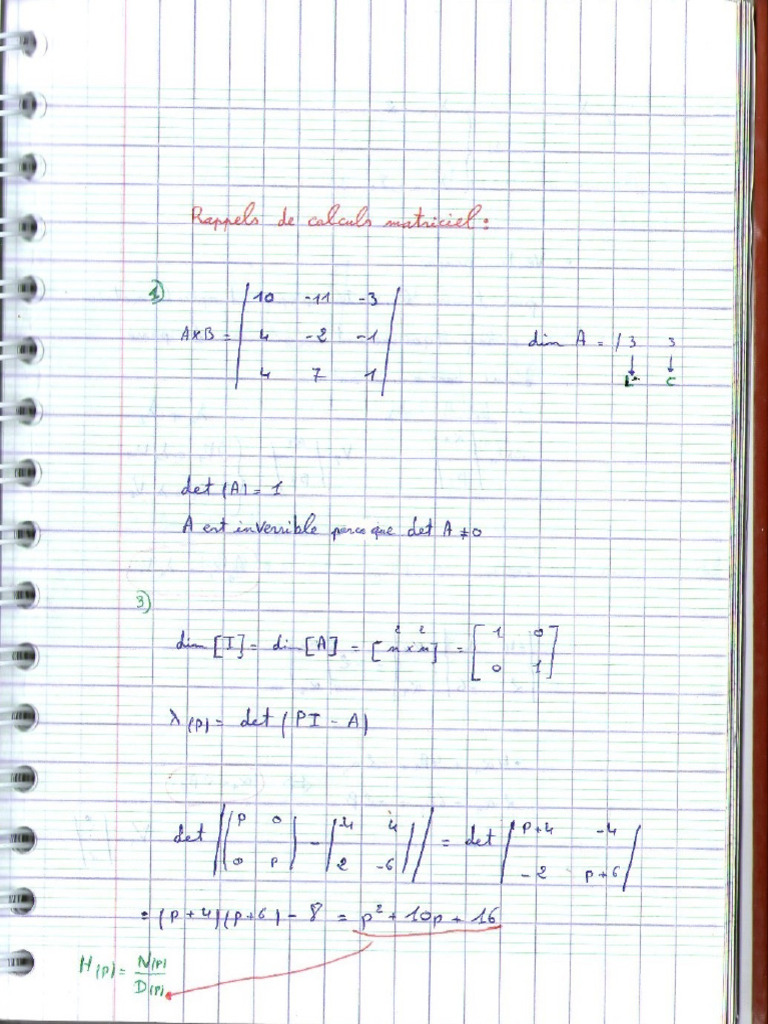 Rappels de calculs matriciel:
1)
A×B = | 10 -11 -3 |
| 4 -2 -1 |
| 4 7 1 |
dim A = / 3 3
↓ ↓
L C
det (A) = 1
A est inversible parce que det A ≠ 0
3)
dim [I] = di [A] = [n² × n²] = [1 0
0 1]
λ(P) = det (PI - A)
det ||P 0
0 P| - |-4 4
2 -6|| = det |P+4 -4
-2 P+6|
= (P+4)(P+6) - 8 = P² + 10P + 16
H(P) = N(P)
D(P)